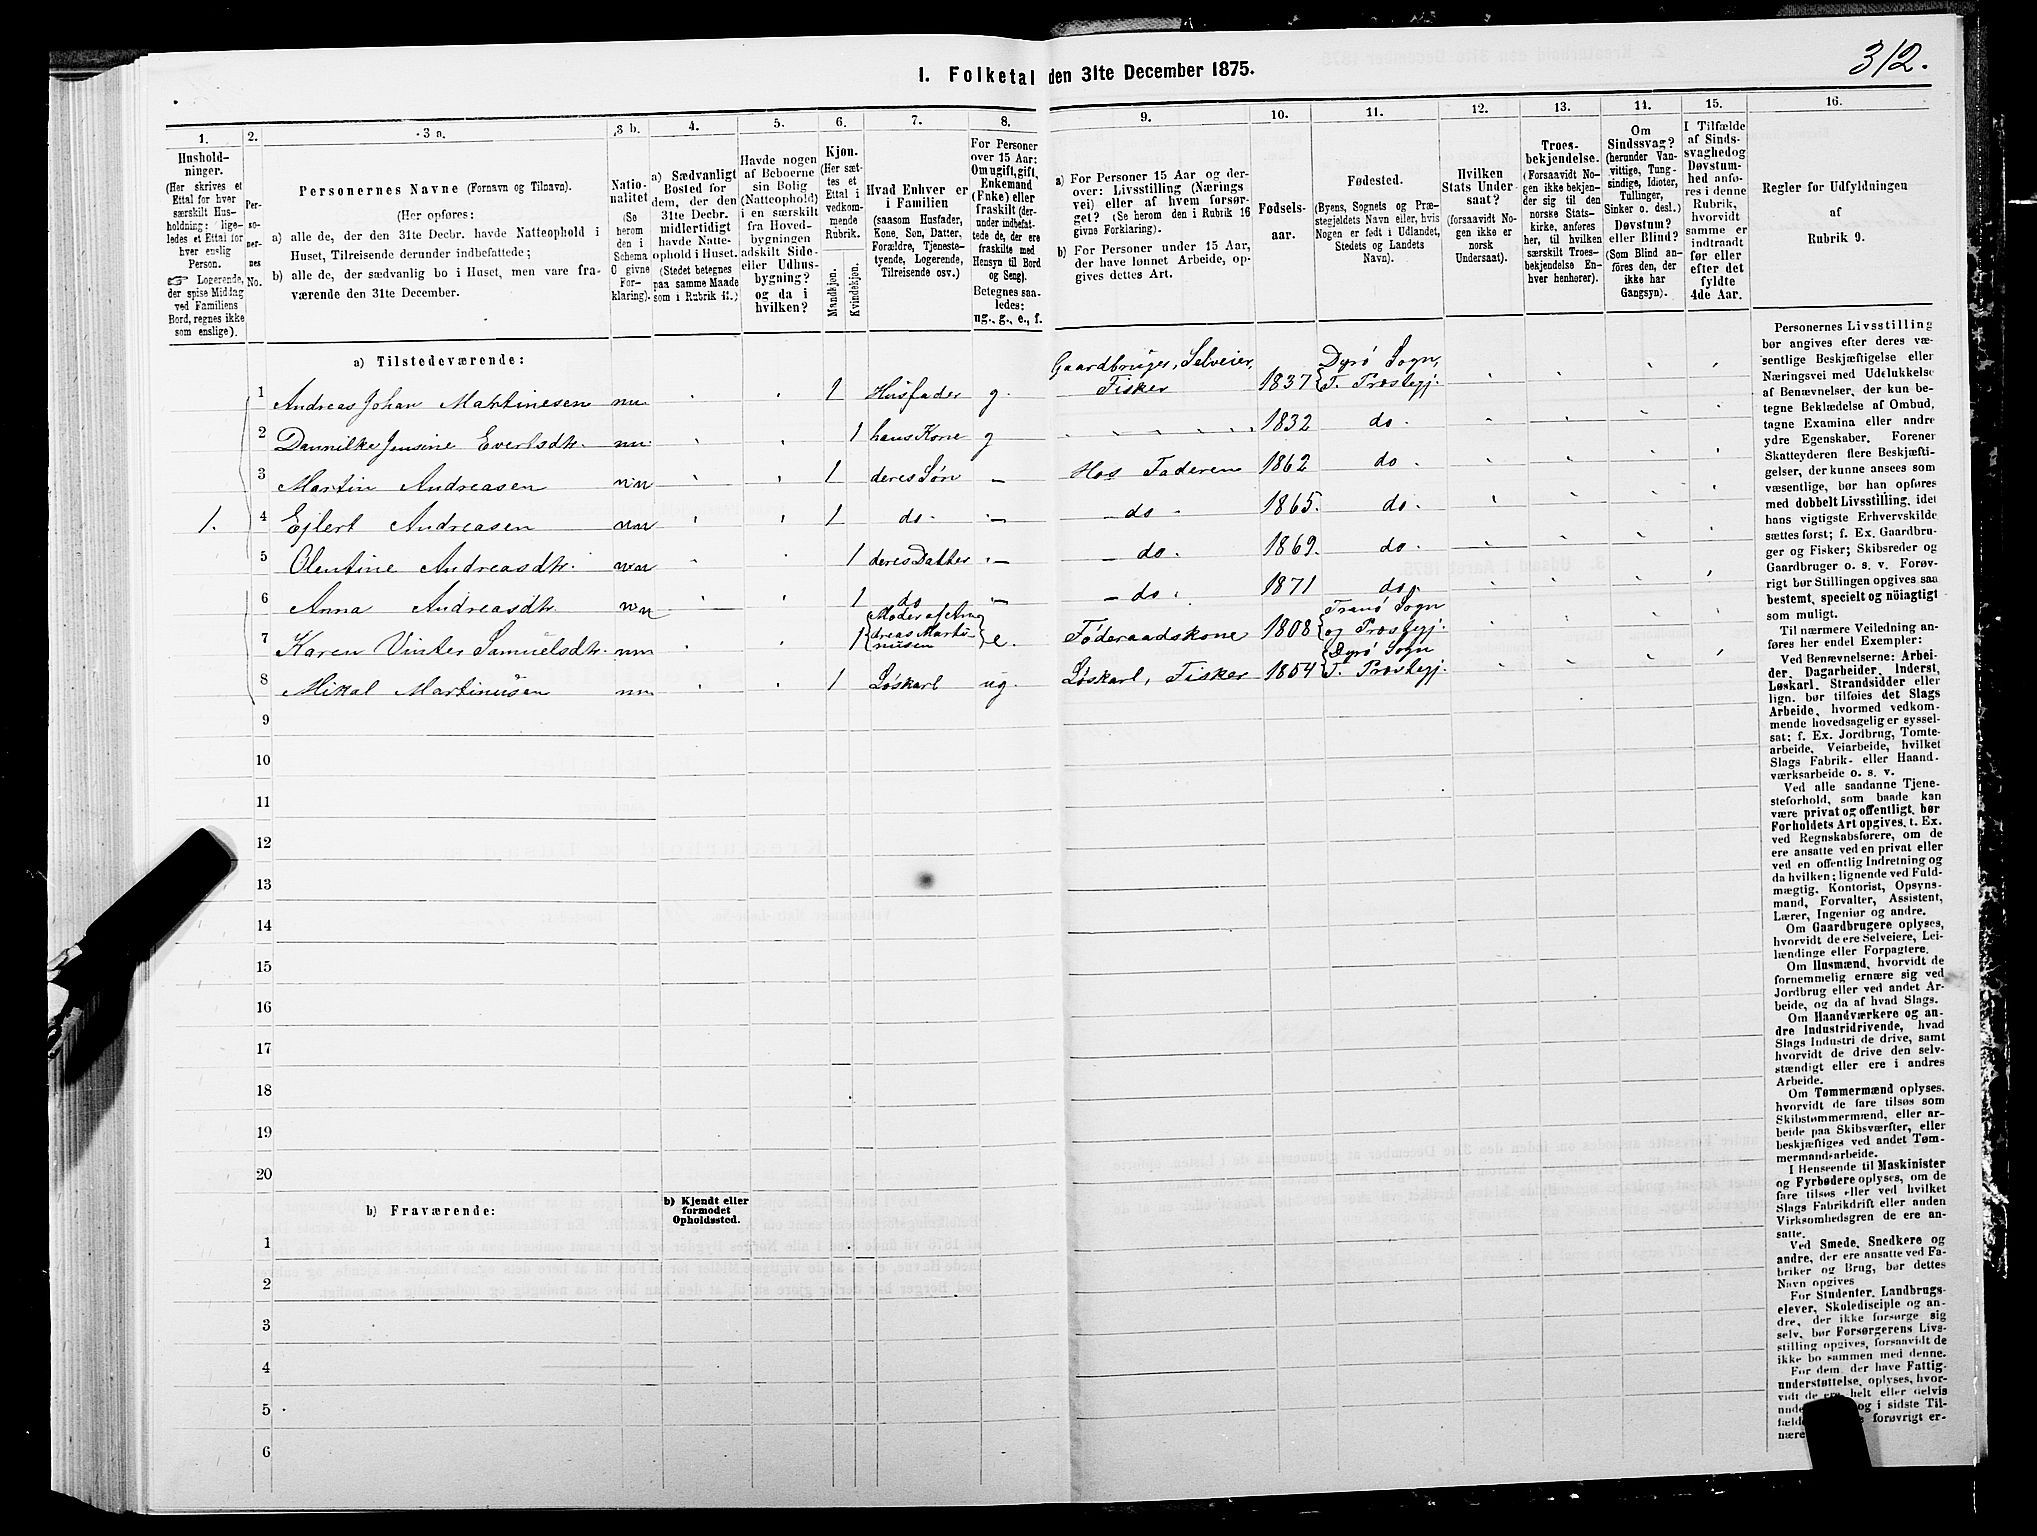 312.
1. Folketal den 31te December 1875.
1.
2.
3 a.
3 b.
4.
5.
6.
7.
8.
9.
10.
11.
12.
13.
14.
15.
16.
Hushold-
ninger.
(Her skrives et
Ettal for hver
særskilt Hus-
holdning; lige-
ledes et Ettal for
hver enslig
Person.
☞ Logerende,
der spise Middag
ved Familiens
Bord, regnes ikke
som enslige).
Per-
soner-
nes
No.
Personernes Navne (Fornavn og Tilnavn).
(Her opføres:
a) alle de, der den 31te Decbr. havde Natteophold i
Huset, Tilreisende derunder indbefattede;
b) alle de, der sædvanlig bo i Huset, men vare fra-
værende den 31te December.
Natio-
nalitet
(Se
herom
den i
Schema
O givne
For-
klaring).
a) Sædvanligt
Bosted for
dem, der den
31te Decbr.
midlertidigt
havde Natte-
ophold i Huset.
(Stedet betegnes
paa samme Maade
som i Rubrik 11.)
Havde nogen
af Beboerne
sin Bolig
(Natteophold)
i en særskilt
fra Hoved-
bygningen
adskilt Side-
eller Udhus-
bygning?
og da i
hvilken?
Kjøn.
(Her sæt-
tes et
Ettal i
vedkom-
mende
Rubrik.
Mandkjøn.
Kvindekjøn.
Hvad Enhver er
i Familien
(saasom Husfader,
Kone, Søn, Datter,
Forældre, Tjeneste-
tyende, Logerende,
Tilreisende osv.)
For Personer
over 15 Aar:
Om ugift, gift,
Enkemand
(Enke) eller
fraskilt (der-
under indbefat-
tede de, der ere
fraskilte med
Hensyn til Bord
og Seng).
Betegnes saa-
ledes:
ug., g., e., f.
a) For Personer 15 Aar og der-
over: Livsstilling (Nærings
vei) eller af hvem forsør-
get? (Se herom den i Rubrik 16
givne Forklaring).
b) For Personer under 15 Aar,
der have lønnet Arbeide, op-
gives dettes Art.
Fødsels-
aar.
Fødested.
(Byens, Sognets og Præ-
stegjeldets Navn eller, hvis
Nogen er født i Udlandet,
Stedets og Landets
Navn).
Hvilken
Stats Under-
saat?
(forsaavidt No-
gen ikke er
norsk
Undersaat).
Troes-
bekjendelse.
(Forsaavidt No-
gen ikke bekjen-
der sig til den
norske Stats-
kirke, anføres
her, til hvilken
særskilt Troes-
bekjendelse En-
hver henhorer).
Om
Sindssvag?
(herunder Van-
vittige, Tung-
sindige, Idioter,
Tullinger,
Sinker o. desl.)
Døvstum?
eller Blind?
(Som Blind an-
føres den, der
ikke har
Gangsyn).
I Tilfælde
af Sinds-
svaghed og
Døvstum-
hed anfø-
res i denne
Rubrik,
hvorvidt
samme er
indtraadt
før eller
efter det
fyldte
4de Aar.
Regler for Udfyldningen
af
Rubrik 9.
a) Tilstedeværende:
1 Andreas Johan Martinesen nn 1 Husfader g. Gaardbruger, Selveier, Fisker 1837 Dyrö Sogn, T. Prostegj.
2 Dannilke Jensine Evertsdtr. nn 1 hans Kone g 1832 do.
3 Martin Andreasen nn 1 deres Søn — Hos Faderen 1862 do.
1. 4 Ejlert Andreasen nn 1 do. — do 1865. do.
5 Olentine Andreasdtr. nn 1 deres Datter — do. 1869. do.
6 Anna Andreasdtr nn 1 do — do. 1871 do.
7 Karen Vinter Samuelsdtr. nn 1 Moder af Andreas Martinusen e. Føderaadskone 1808 Tranö Sogn og Prostegj.
8 Mikal Martinusen nn 1 Løskarl ug. Løskarl, Fisker 1854 Dyrö Sogn T. Prostegj.
9
10
11
12
13
14
15
16
17
18
19
20
b) Fraværende:
b) Kjendt eller
formodet
Opholdssted.
1
2
3
4
5
6
Personernes Livsstilling
bør angives efter deres væ-
sentlige Beskjæftigelse eller
Næringsvei med Udelukkelse
af Benævnelser, der kun be-
tegne Beklædelse af Ombud,
tagne Examina eller andre
ydre Egenskaber. Forener
Skatteyderen flere Beskjæfti-
gelser, der kunne ansees som
væsentlige, bør han opføres
med dobbelt Livsstilling, idet
hans vigtigste Erhvervskilde
sættes først; f. Ex. Gaardbru-
ger og Fisker; Skibsreder og
Gaardbruger o. s. v. Forøv-
rigt bør Stillingen opgives saa
bestemt, specielt og nöiagtigt
som muligt.
Til nærmere Veiledning an-
føres her endel Exempler:
Ved Benævnelserne: Arbei-
der, Dagarbeider, Inderst,
Løskarl, Strandsidder eller
lign. bør tilføies det Slags
Arbeide, hvormed vedkom-
mende hovedsagelig er syssel-
sat; f. Ex. Jordbrug, Tomte-
arbeide, Veiarbeide, hvilket
Slags Fabrik- eller Haand-
værksarbeide o. s. v.
Ved alle saadanne Tjene-
steforhold, som baade kan
være privat og offentligt, bør
Forholdets Art opgives, t. Ex.
ved Regnskabsførere, om de
ere ansatte ved en privat eller
ved en offentlig Indretning og
da hvilken; lignende ved Fuld-
mægtig, Kontorist, Opsyns-
mand, Forvalter, Assistent,
Lærer, Ingeniør og andre.
Om Gaardbrugere oplyses,
hvorvidt de ere Selveiere, Lei-
lændinge eller Forpagtere.
Om Husmænd, hvorvidt de
fornemmelig ernære sig ved
Jordbrug eller ved andet Ar-
beide, og da af hvad Slags.
Om Haandværkere og an-
dre Industridrivende, hvad
Slags Industri de drive, samt
hvorvidt de drive den selv-
stændigt eller ere i andres
Arbeide.
Om Tømmermænd oplyses,
hvorvidt de fare tilsøs som
Skibstømmermænd, eller ar-
beide paa Skibsværfter, eller
beskjæftiges ved andet Tøm-
mermandsarbeide.
I Henseende til Maskinister
og Fyrbødere oplyses, om de
fare tilsøs eller ved hvilket
Slags Fabrikdrift eller anden
Virksomhedsgren de ere an-
satte.
Ved Smede, Snedkere og
andre, der ere ansatte ved Fa-
briker og Brug, bør dettes
Navn opgives
For Studenter, Landbrugs-
elever, Skoledisciple og an-
dre, der ikke forsørge sig
selv, bør Forsørgerens Livs-
stilling opgives, forsaavidt de
ikke bo sammen med denne.
For dem, der have Fattig-
understøttelse, oplyses, hvor-
vidt de ere helt eller delvis
og i sidste Til-
forøvrigt er-